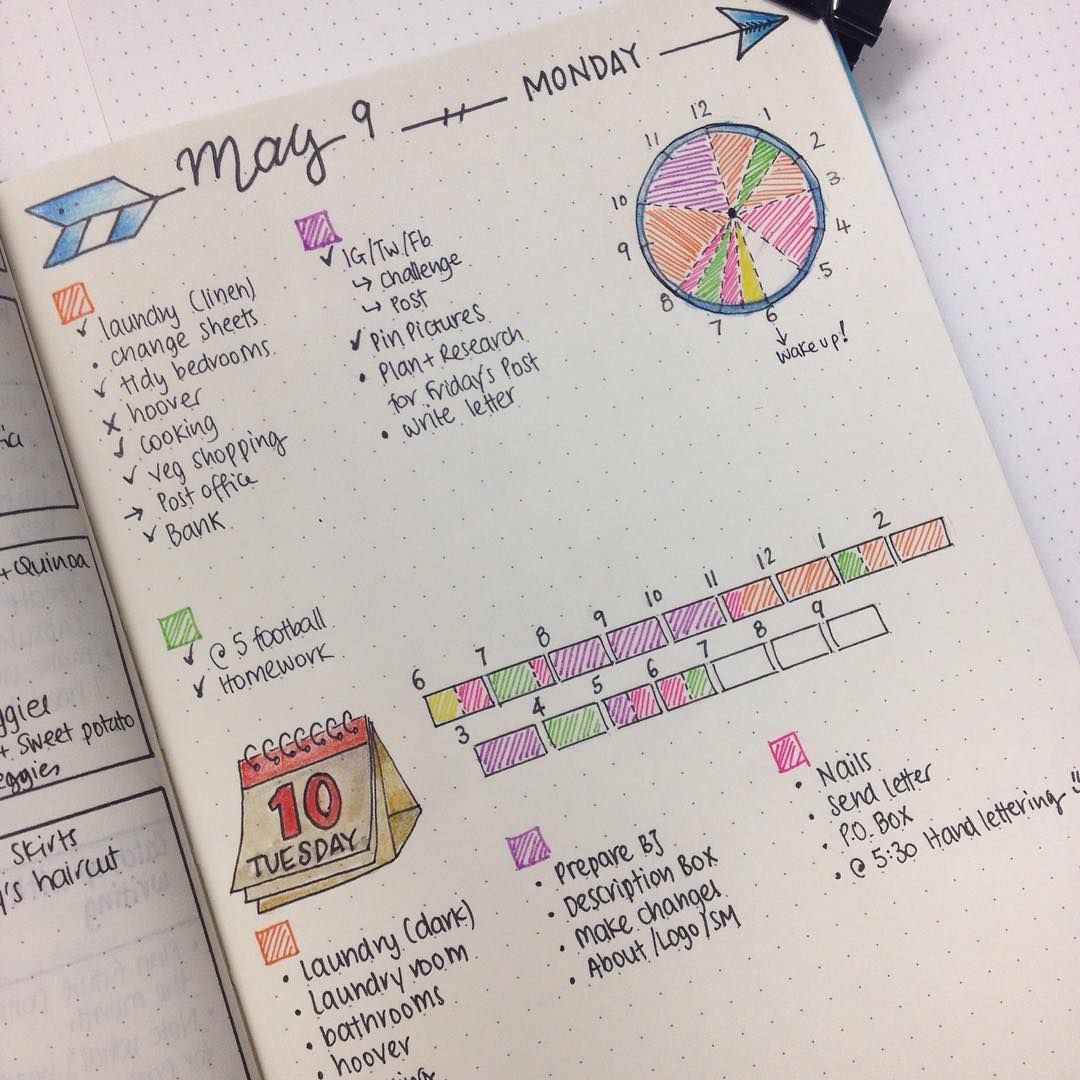 May 9
MONDAY
laundry (linen)
change sheets
tidy bedrooms
hoover
cooking
veg shopping
Post office
Bank
IG/TW/Fb
challenge
Post
Pin Pictures
Plan + Research
for Friday's Post
write letter
12
1
2
3
4
5
6
7
8
9
10
11
wake up!
@ 5 football
Homework
6 7 8 9 10 11 12 1 2
3 4 5 6 7 8 9
10
TUESDAY
laundry (dark)
laundry room
bathrooms
hoover
Prepare BJ
Description Box
make changes
About/Logo/SM
Nails
send letter
P.O. Box
@ 5:30 Hand lettering
+ Quinoa
+ sweet potato
skirts
's haircut